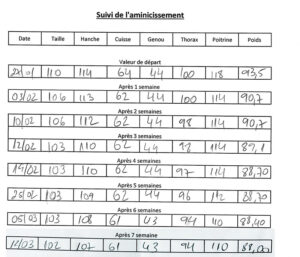 Suivi de l'amincissement
Date Taille Hanche Cuisse Genou Thorax Poitrine Poids
Valeur de départ
110 114 64 44 100 118 93,5
Après 1 semaine
03/02 106 113 62 44 100 114 90,7
Après 2 semaines
10/02 106 112 62 44 98 114 90,7
Après 3 semaines
12/02 103 110 62 44 114
Après 4 semaines
103 110 62 44 97 114 88,70
Après 5 semaines
103 109 62 44 96 88,70
Après 6 semaines
05/03 103 108 61 43 94 110 88,40
Après 7 semaine
12/03 102 107 61 43 94 110 88,00